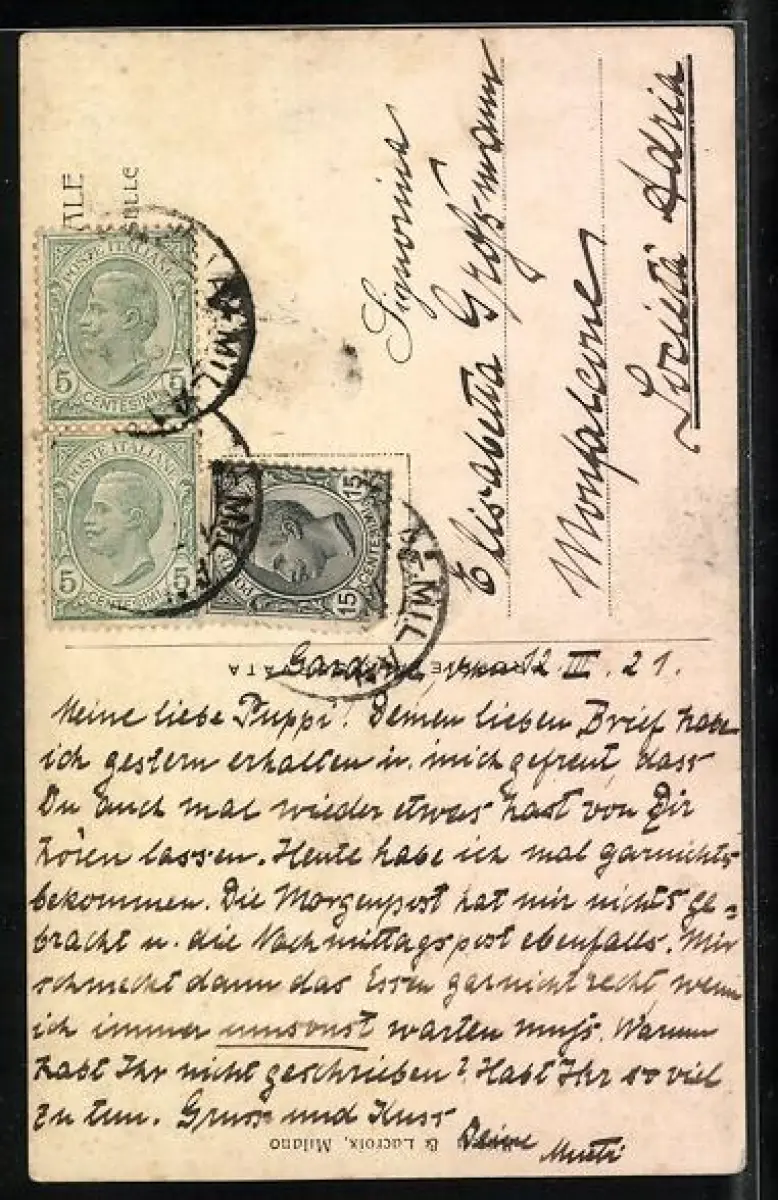 ALE
POSTE ITALIANE
5 5
CENTESIMI
POSTE ITALIANE
5 5
CENTESIMI
15 15
CENTESIMI
MILA
MIL
MILA
Signorina
Elisabetta Großmann
Monfalcone
Società Adria
12. III. 21.
Meine liebe Puppi! Deinen lieben Brief habe
ich gestern erhalten u. mich gefreut, dass
Du auch mal wieder etwas hast von Dir
hören lassen. Heute habe ich mal garnichts
bekommen. Die Morgenpost hat mir nichts ge=
bracht u. die Nachmittagspost ebenfalls. Mir
schmeckt dann das Essen garnicht recht, wenn
ich immer umsonst warten muß. Warum
habt Ihr nicht geschrieben? Habt Ihr so viel
zu tun. Gruss und Kuss
Deine
Mutti
& Lacroix, Milano